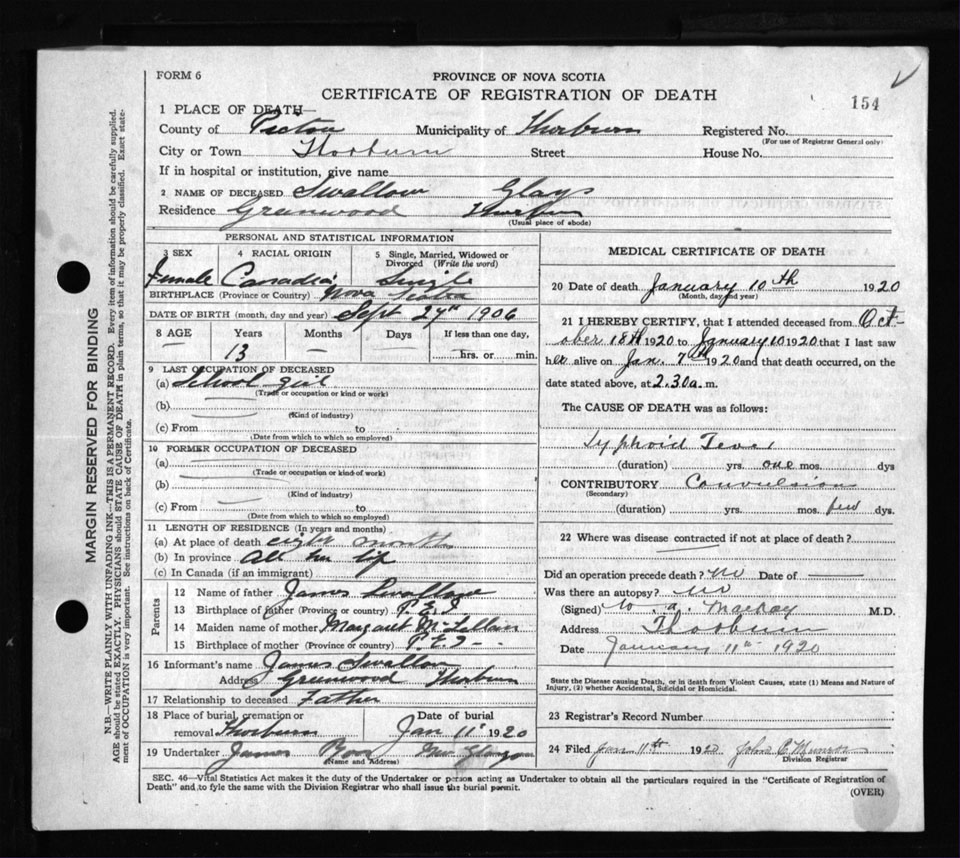 FORM 6
PROVINCE OF NOVA SCOTIA
CERTIFICATE OF REGISTRATION OF DEATH
154
1 PLACE OF DEATH—
County of Pictou Municipality of Thorburn Registered No.
(For use of Registrar General only)
City or Town Thorburn Street House No.
If in hospital or institution, give name
2 NAME OF DECEASED Swallow Glays
Residence Greenwood Thorburn
(Usual place of abode)
PERSONAL AND STATISTICAL INFORMATION
3 SEX 4 RACIAL ORIGIN 5 Single, Married, Widowed or Divorced (Write the word)
Female Canadia Single
BIRTHPLACE (Province or Country) Nova Scotia
DATE OF BIRTH (month, day and year) Sept 27th 1906
8 AGE Years Months Days If less than one day,
13 — — hrs. or min.
9 LAST OCCUPATION OF DECEASED
(a) School girl
(Trade or occupation or kind or work)
(b)
(Kind of industry)
(c) From to
(Date from which to which so employed)
10 FORMER OCCUPATION OF DECEASED
(a)
(Trade or occupation or kind of work)
(b)
(Kind of industry)
(c) From to
(Date from which to which so employed)
11 LENGTH OF RESIDENCE (In years and months)
(a) At place of death eight months
(b) In province All her life
(c) In Canada (if an immigrant)
Parents
12 Name of father James Swallow
13 Birthplace of father (Province or country) P.E.I
14 Maiden name of mother Margaret McLellan
15 Birthplace of mother (Province or country) P.E.I
16 Informant's name James Swallow
Address Greenwood Thorburn
17 Relationship to deceased Father
18 Place of burial, cremation or removal Thorburn Date of burial Jan 11 1920
19 Undertaker James Ross New Glasgow
(Name and Address)
MEDICAL CERTIFICATE OF DEATH
20 Date of death January 10th 1920
(Month, day and year)
21 I HEREBY CERTIFY, that I attended deceased from Oct-
ober 18th 1920 to January 10 1920 that I last saw
her alive on Jan. 7th 1920 and that death occurred, on the
date stated above, at 2.30 a. m.
The CAUSE OF DEATH was as follows:
Typhoid Fever
(duration) yrs. one mos. dys
CONTRIBUTORY Convulsion
(Secondary)
(duration) yrs. mos. few dys.
22 Where was disease contracted if not at place of death?
Did an operation precede death? No Date of
Was there an autopsy? No
(Signed) W. A. MacKay M.D.
Address Thorburn
Date January 11th 1920
State the Disease causing Death, or in death from Violent Causes, state (1) Means and Nature of
Injury, (2) whether Accidental, Suicidal or Homicidal.
23 Registrar's Record Number
24 Filed Jan 11th 1920 John C Munro
Division Registrar
SEC. 46—Vital Statistics Act makes it the duty of the Undertaker or person acting as Undertaker to obtain all the particulars required in the "Certificate of Registration of
Death" and to fyle the same with the Division Registrar who shall issue the burial permit.
(OVER)
MARGIN RESERVED FOR BINDING
N.B.—WRITE PLAINLY WITH UNFADING INK—THIS IS A PERMANENT RECORD. Every item of information should be carefully supplied.
AGE should be stated EXACTLY. PHYSICIANS should STATE CAUSE OF DEATH in plain terms, so that it may be properly classified. Exact state-
ment of OCCUPATION is very important. See instructions on back of Certificate.